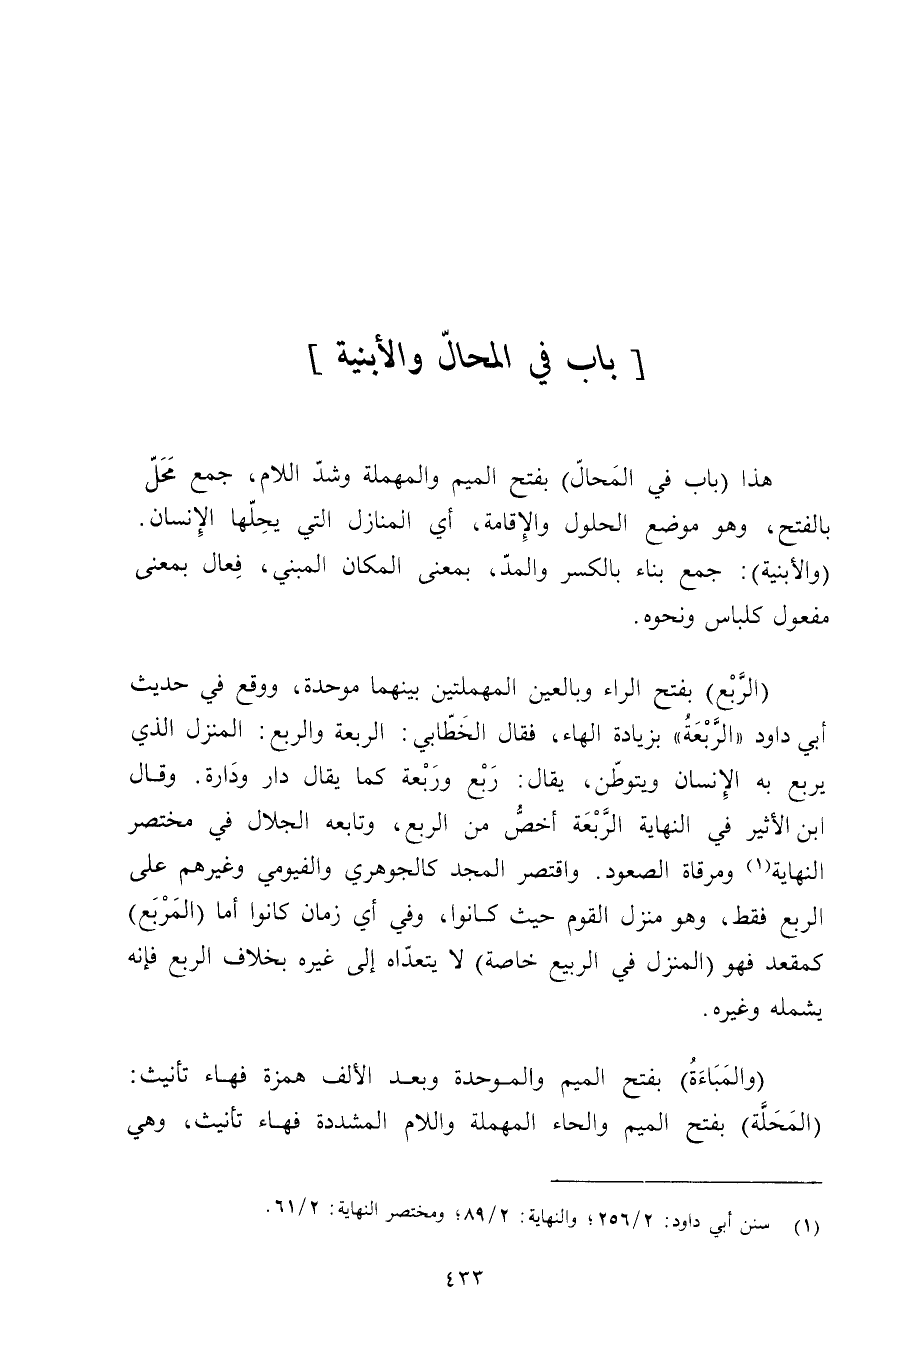 [ باب في المحالّ والأبنية ]
هذا (باب في المَحالّ) بفتح الميم والمهملة وشدّ اللام، جمع مَحَلّ
بالفتح، وهو موضع الحلول والإقامة، أي المنازل التي يحِلّها الإنسان.
(والأبنية): جمع بناء بالكسر والمدّ، بمعنى المكان المبني، فِعال بمعنى
مفعول كلباس ونحوه.
(الرَّبْع) بفتح الراء وبالعين المهملتين بينهما موحدة، ووقع في حديث
أبي داود «الرَّبْعَةُ» بزيادة الهاء، فقال الخَطّابي: الربعة والربع: المنزل الذي
يربع به الإنسان ويتوطّن، يقال: رَبْع ورَبْعة كما يقال دار ودَارة. وقال
ابن الأثير في النهاية الرَّبْعَة أخصُّ من الربع، وتابعه الجلال في مختصر
النهاية(١) ومرقاة الصعود. واقتصر المجد كالجوهري والفيومي وغيرهم على
الربع فقط، وهو منزل القوم حيث كانوا، وفي أي زمان كانوا أما (المَرْبَع)
كمقعد فهو (المنزل في الربيع خاصة) لا يتعدّاه إلى غيره بخلاف الربع فإنه
يشمله وغيره.
(والمَبَاءَةُ) بفتح الميم والموحدة وبعد الألف همزة فهاء تأنيث:
(المَحَلَّة) بفتح الميم والحاء المهملة واللام المشددة فهاء تأنيث، وهي
(١) سنن أبي داود: ٢/٢٥٦؛ والنهاية: ٢/٨٩؛ ومختصر النهاية: ٢/٦١.
٤٣٣